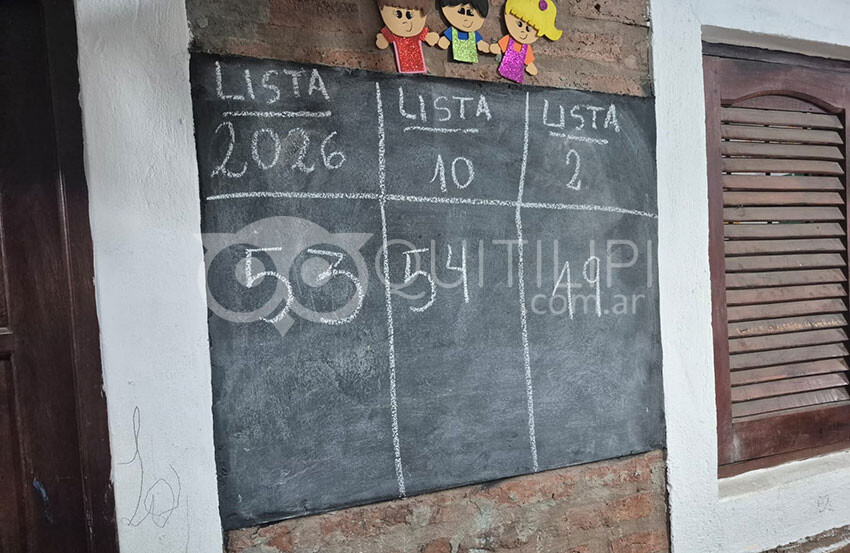 LISTA LISTA LISTA
2026 10 2
53 54 19
QUITILIPI
com.ar